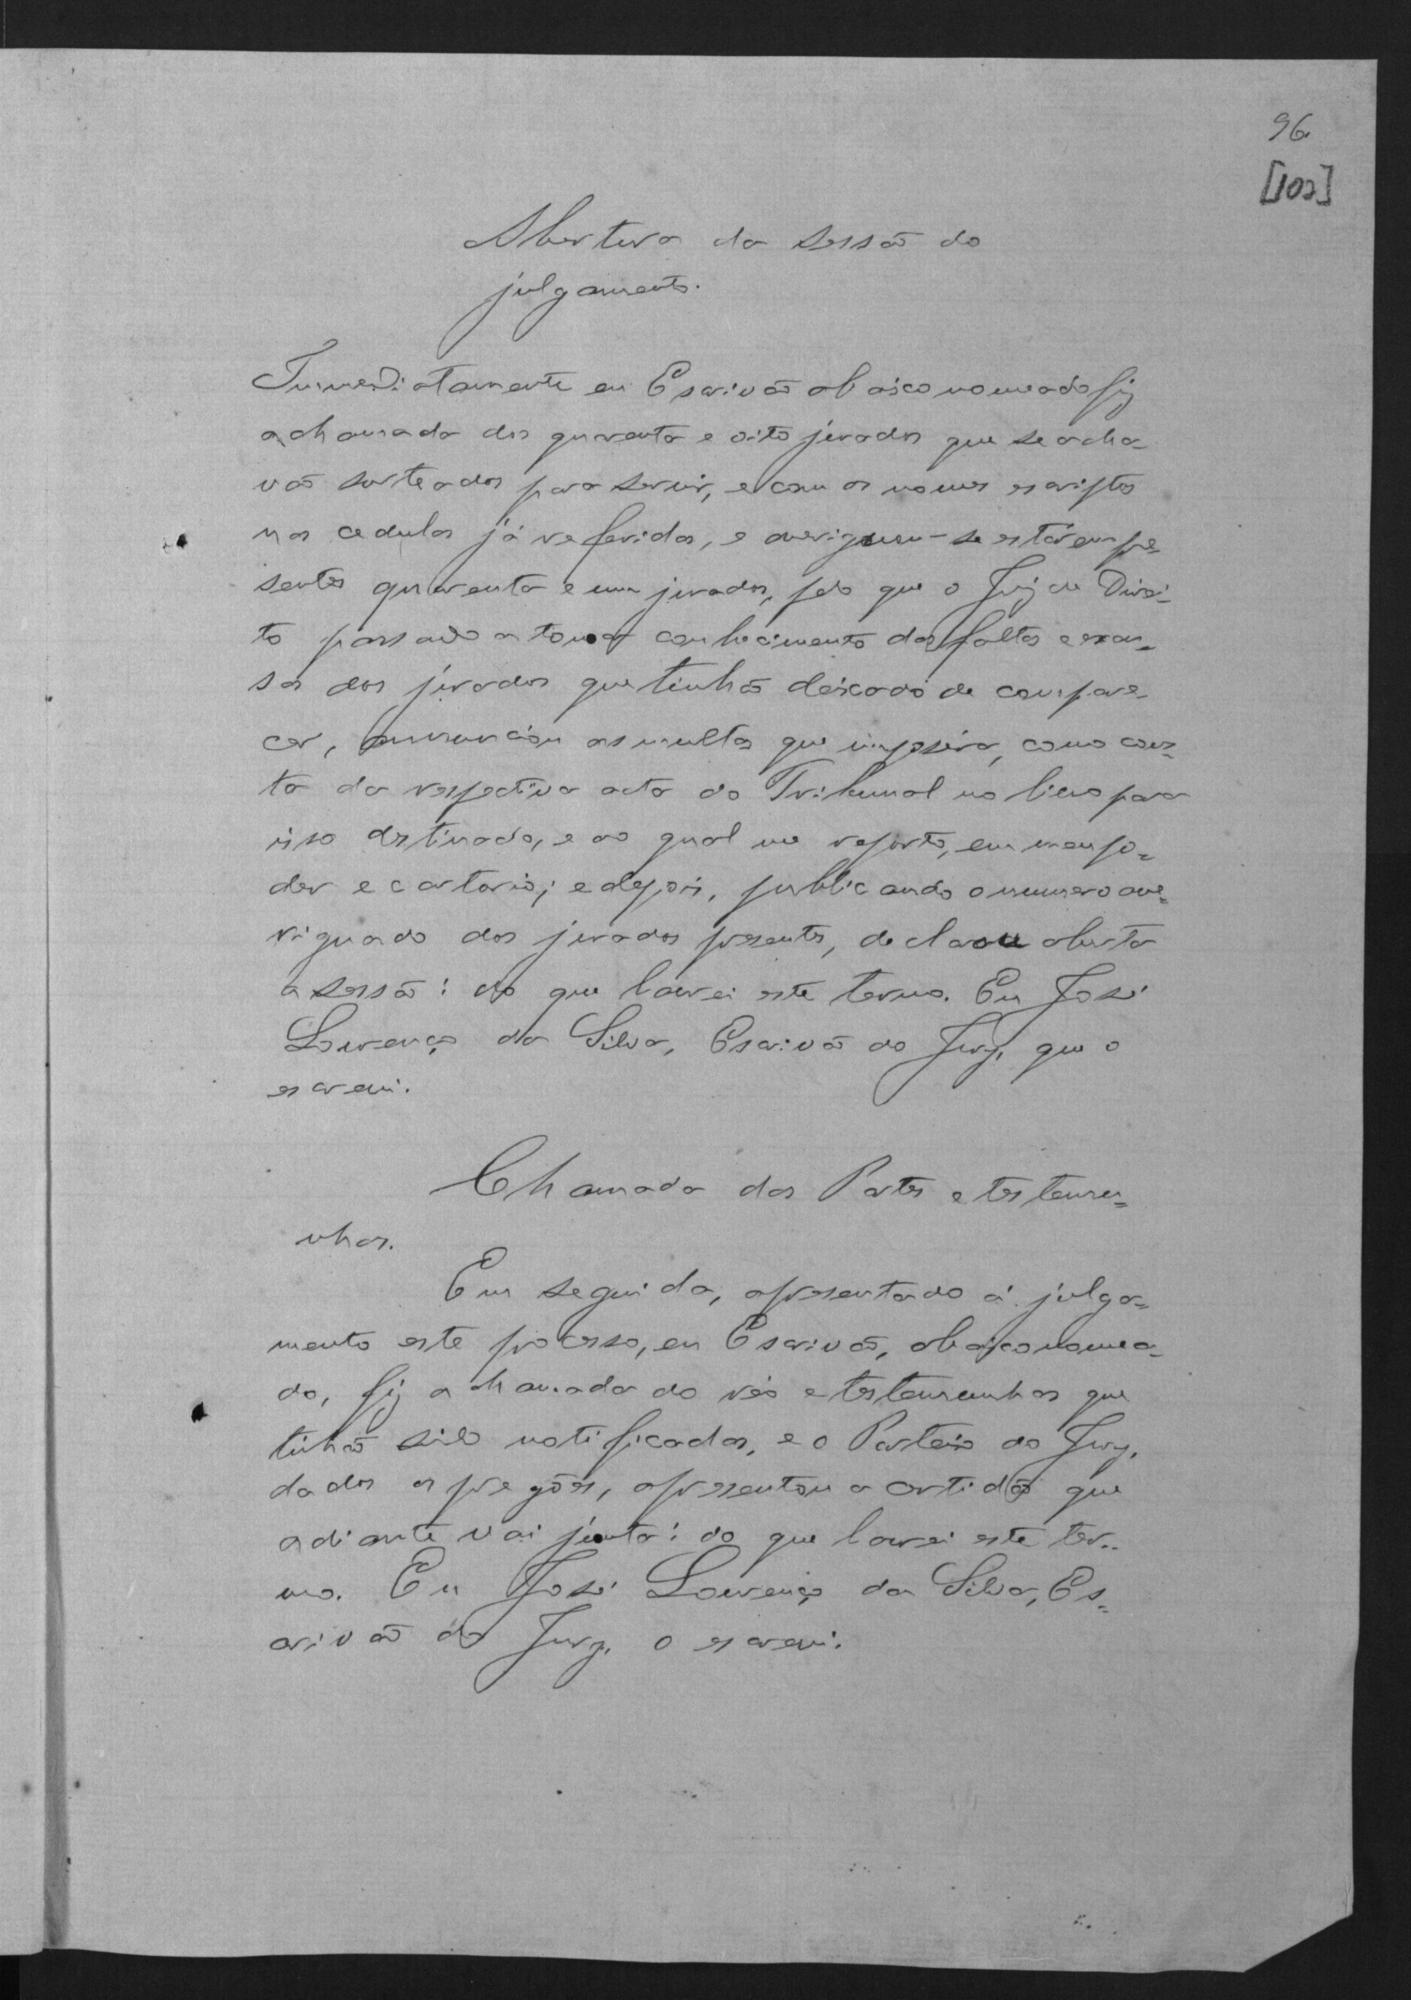 96
[102]
Abertura da sessão do
julgamento.
Immediatamente eu Escrivão abaixo nomeado fiz
a chamada dos quarenta e oito jurados que se acha-
vão sorteados para servir, e com os nomes escriptos
nas cedulas já referidas, e averiguou-se estárem pre=
sentes quarenta e um jurados, pelo que o Juiz de Direi-
to passando a tomar conhecimento das faltas e excu=
sas dos jurados que tinhão deixado de compare-
cer, annunciou as multas que imposera, como cons=
ta da respectiva acta do Tribunal no livro para
isso destinado, e ao qual me reporto, em meu po=
der e cartorio; e depois, publicando o numero ave=
riguado dos jurados presentes, declarou aberta
a sessão: do que lavrei este termo. Eu José
Lourenço da Silva, Escrivão do Jury, que o
escrevi.
Chamada das Partes e testemu=
nhas.
Em seguida, apresentado á julga=
mento este processo, eu Escrivão, abaixo nomea-
do, fiz a chamada do réo e testemunhas que
tinhão sido notificadas, e o Porteiro do Jury,
dados os pregões, apresentou a certidão que
adiante vai junta: do que lavrei este ter..
mo. Eu José Lourenço da Silva, Es=
crivão do Jury, o escrevi.